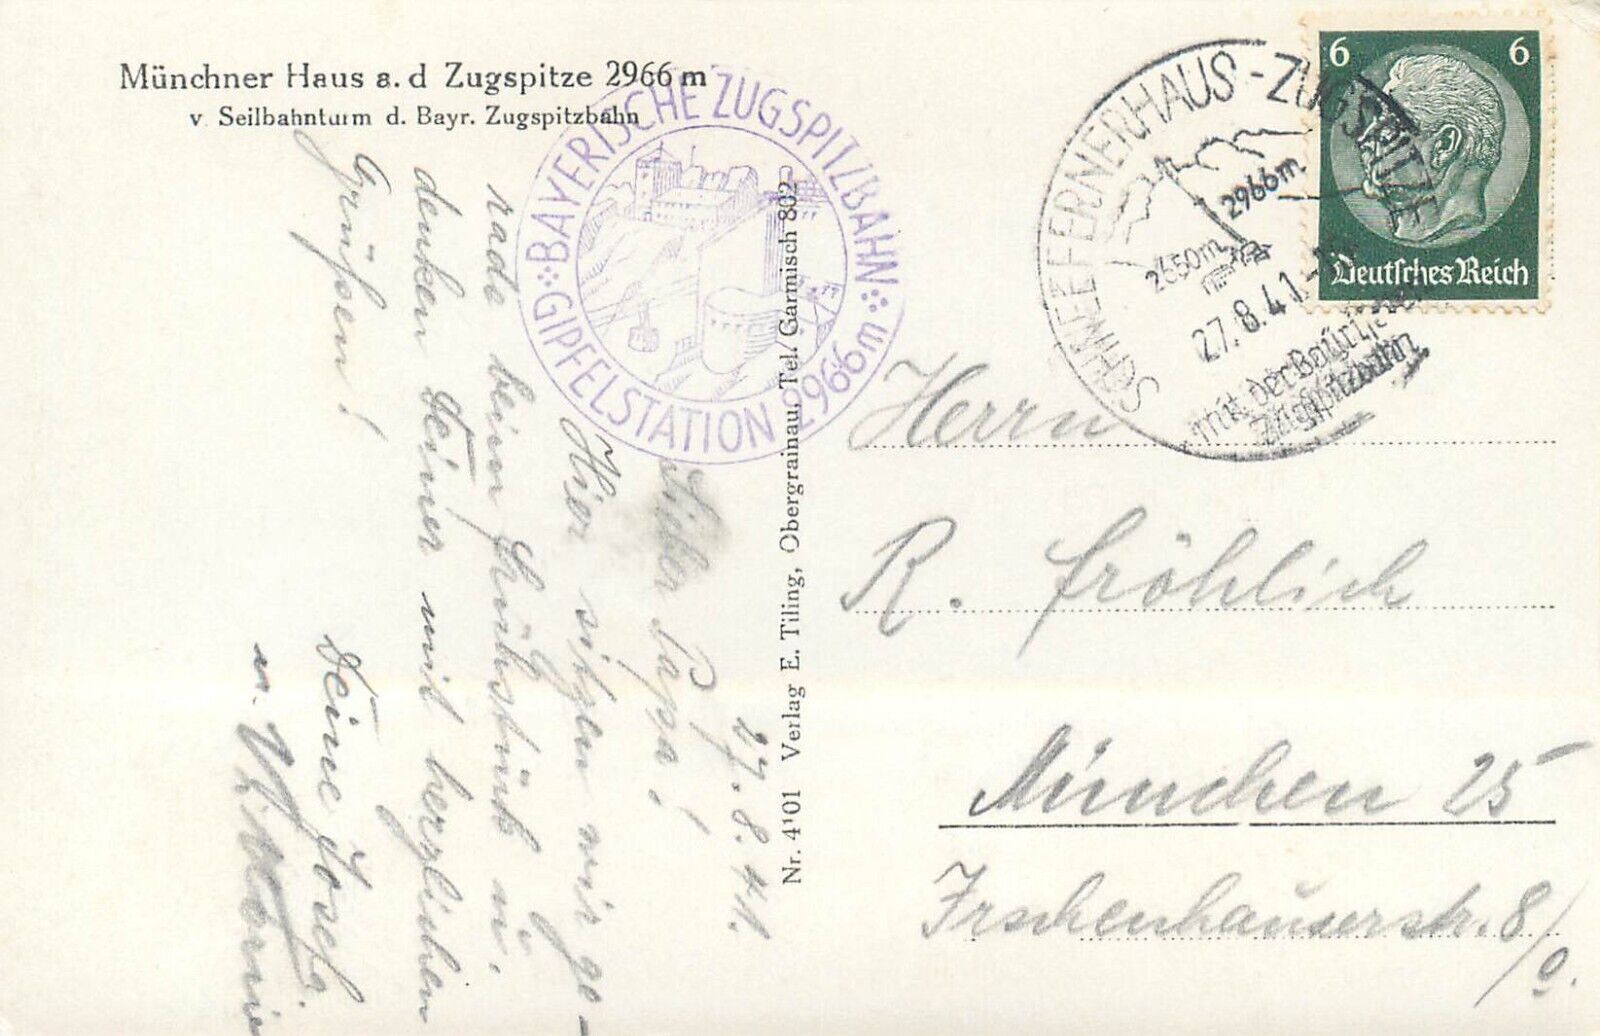 Münchner Haus a. d Zugspitze 2966 m
v. Seilbahnturm d. Bayr. Zugspitzbahn
BAYERISCHE ZUGSPITZBAHN
GIPFELSTATION 2966m
SCHNEEFERNERHAUS - ZUGSPITZE
2966m
2650m
27.8.41
mit der Bayrischen
Zugspitzbahn
6 6
Deutsches Reich
27.8.41.
Lieber Papa!
Hier sitzen wir ge-
rade beim Frühstück u.
denken Deiner mit herzlichen
Grüßen!
Deine Josefa
u. Viktorie
Nr. 4101 Verlag E. Tiling, Obergrainau, Tel. Garmisch 802
Herrn
R. Fröhlich
München 25
Irschenhauserstr. 8/0.